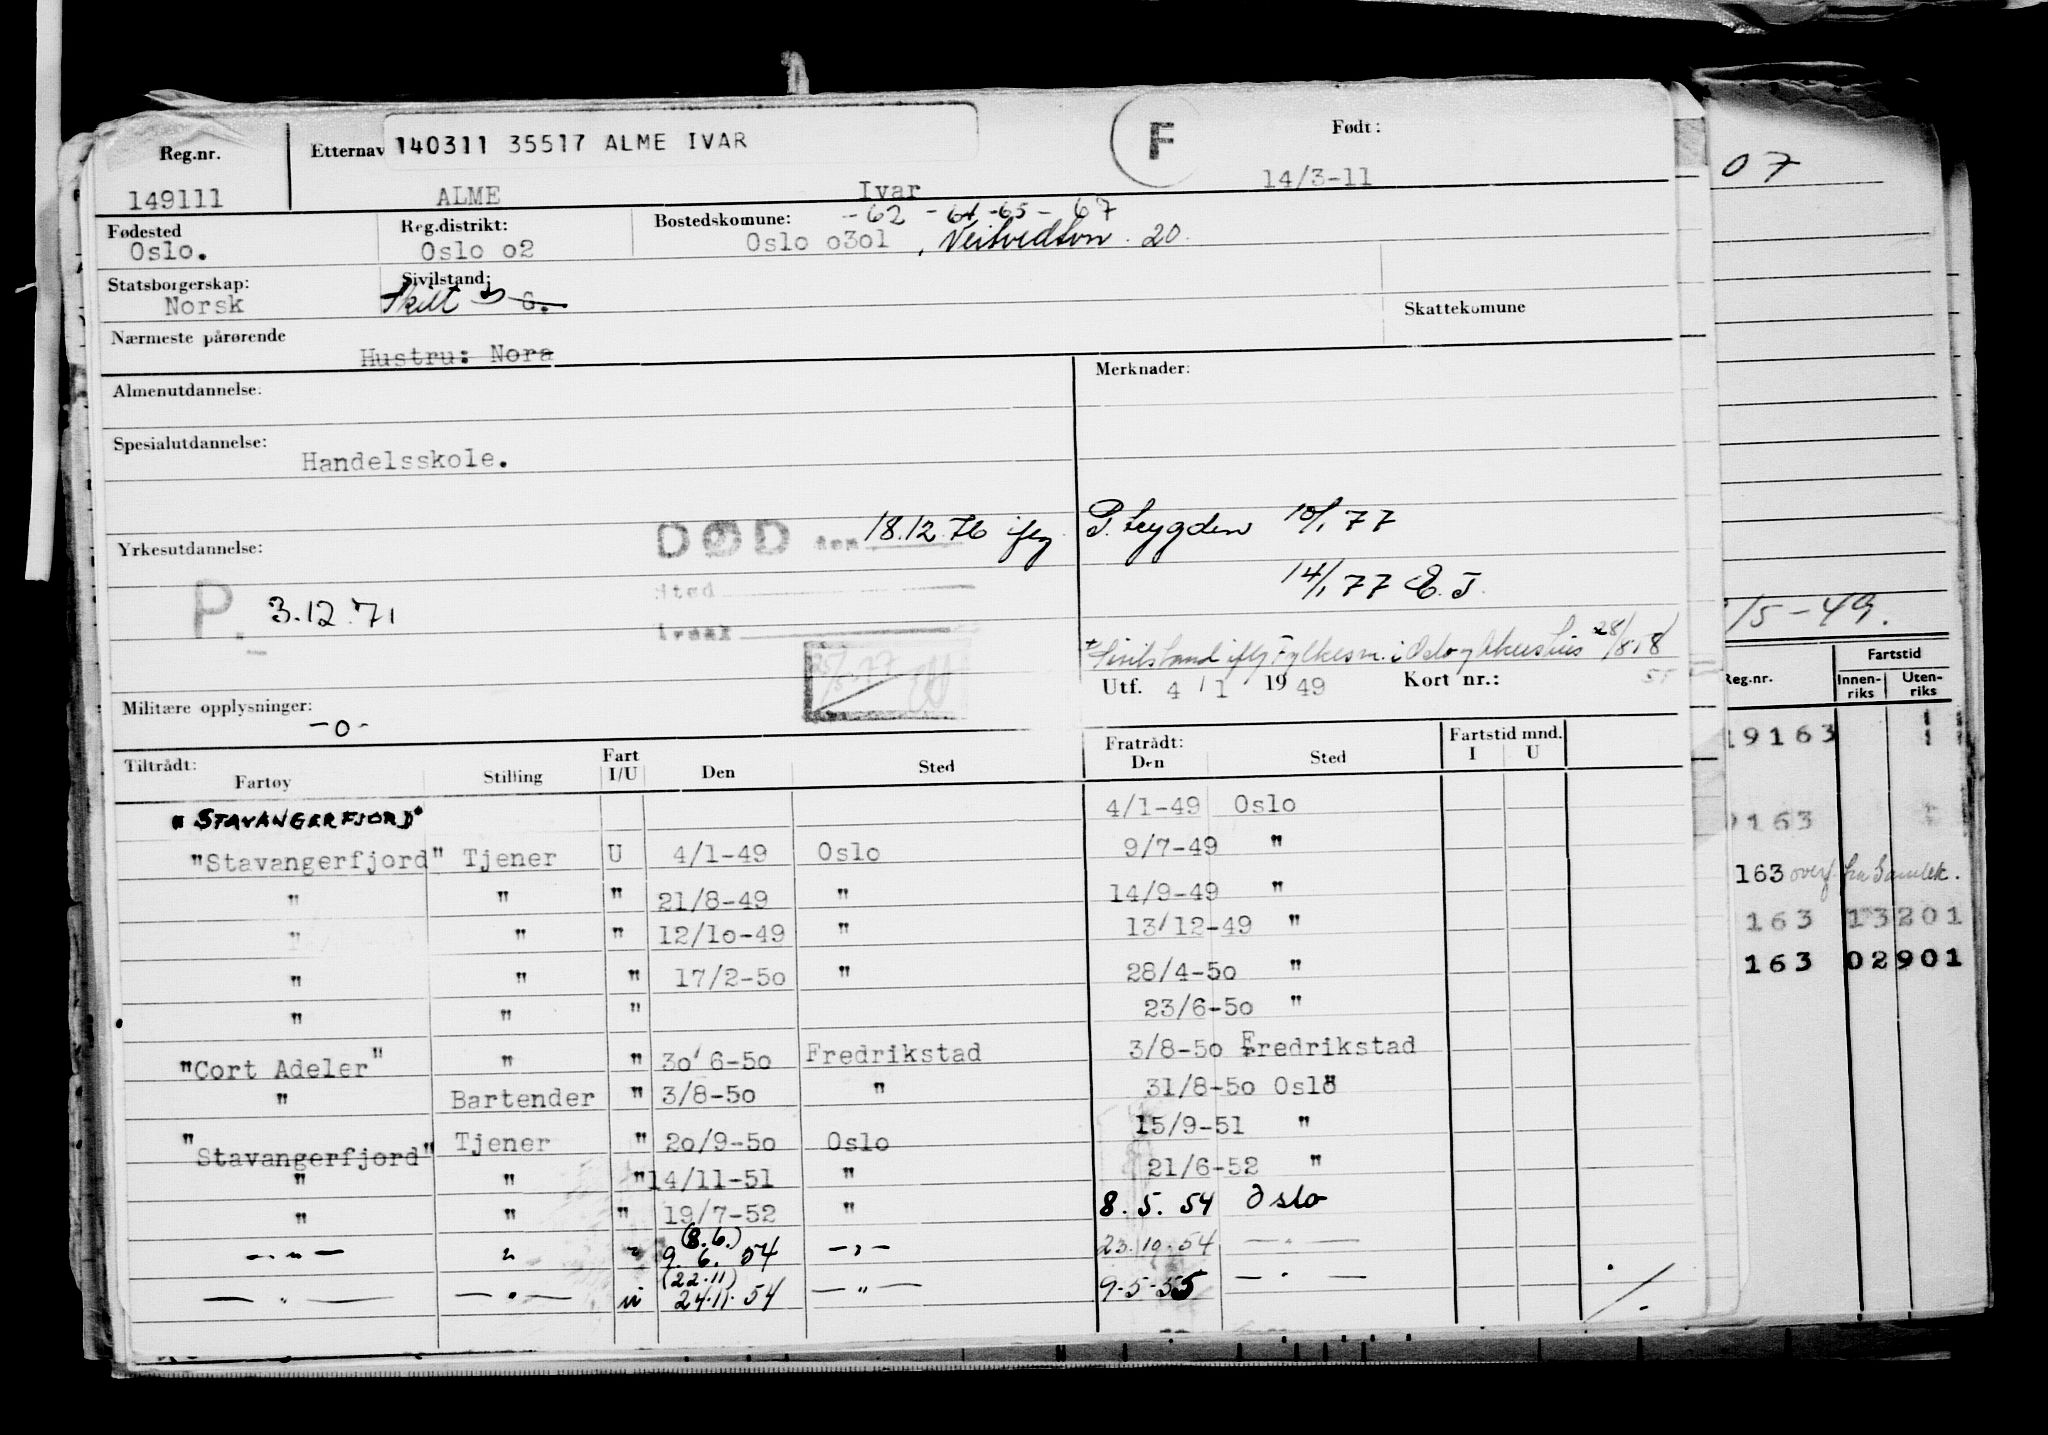 140311 35517 ALME IVAR
F
Født:
Reg.nr.
Etternav
149111
ALME
Ivar
14/3-11
07
Fødested
Reg.distrikt:
Bostedskomune:
-62 -64 -65 - 67
Oslo.
Oslo o2
Oslo o3o1, Veitvedtvn. 20.
Statsborgerskap:
Sivilstand:
Norsk
Skilt
G.
Skattekomune
Nærmeste pårørende
Hustru: Nora
Almenutdannelse:
Merknader:
Spesialutdannelse:
Handelsskole.
DØD den 18.12.76 ifg P. trygden 10/1 77
Yrkesutdannelse:
Sted
14/1 77 E. J.
P. 3.12.71
Årsak
/5-49.
Sivilstand iflg Fylkesm. i Oslo og Akershus 28/8
Utf. 4 / 1 1949 Kort nr.:
Militære opplysninger:
-o-
Reg.nr.
Fartstid
Innen-riks
Uten-riks
Tiltrådt:
Fratrådt:
Fartstid mnd.
Fartøy Stilling Fart I/U Den Sted Den Sted I U
19163
"STAVANGERFJORD" 4/1-49 Oslo
9163
"Stavangerfjord" Tjener U 4/1-49 Oslo 9/7-49 "
163 overf. fra Samlek.
" " " 21/8-49 " 14/9-49 "
163 13201
" " " 12/1o-49 " 13/12-49 "
163 02901
" " " 17/2-5o " 28/4-5o "
" " " 23/6-5o "
"Cort Adeler" " " 3o/6-5o Fredrikstad 3/8-5o Fredrikstad
" Bartender " 3/8-5o " 31/8-5o Oslo
"Stavangerfjord" Tjener " 2o/9-5o Oslo 15/9-51 "
" " " 14/11-51 " 21/6-52 "
" " " 19/7-52 " 8. 5. 54 Oslo
(8.6.)
- " - " " 9. 6. 54 - " - 23.10.54 - " -
(22.11)
- " - - " - " 24.11.54 - " - 9-5-55 - " -